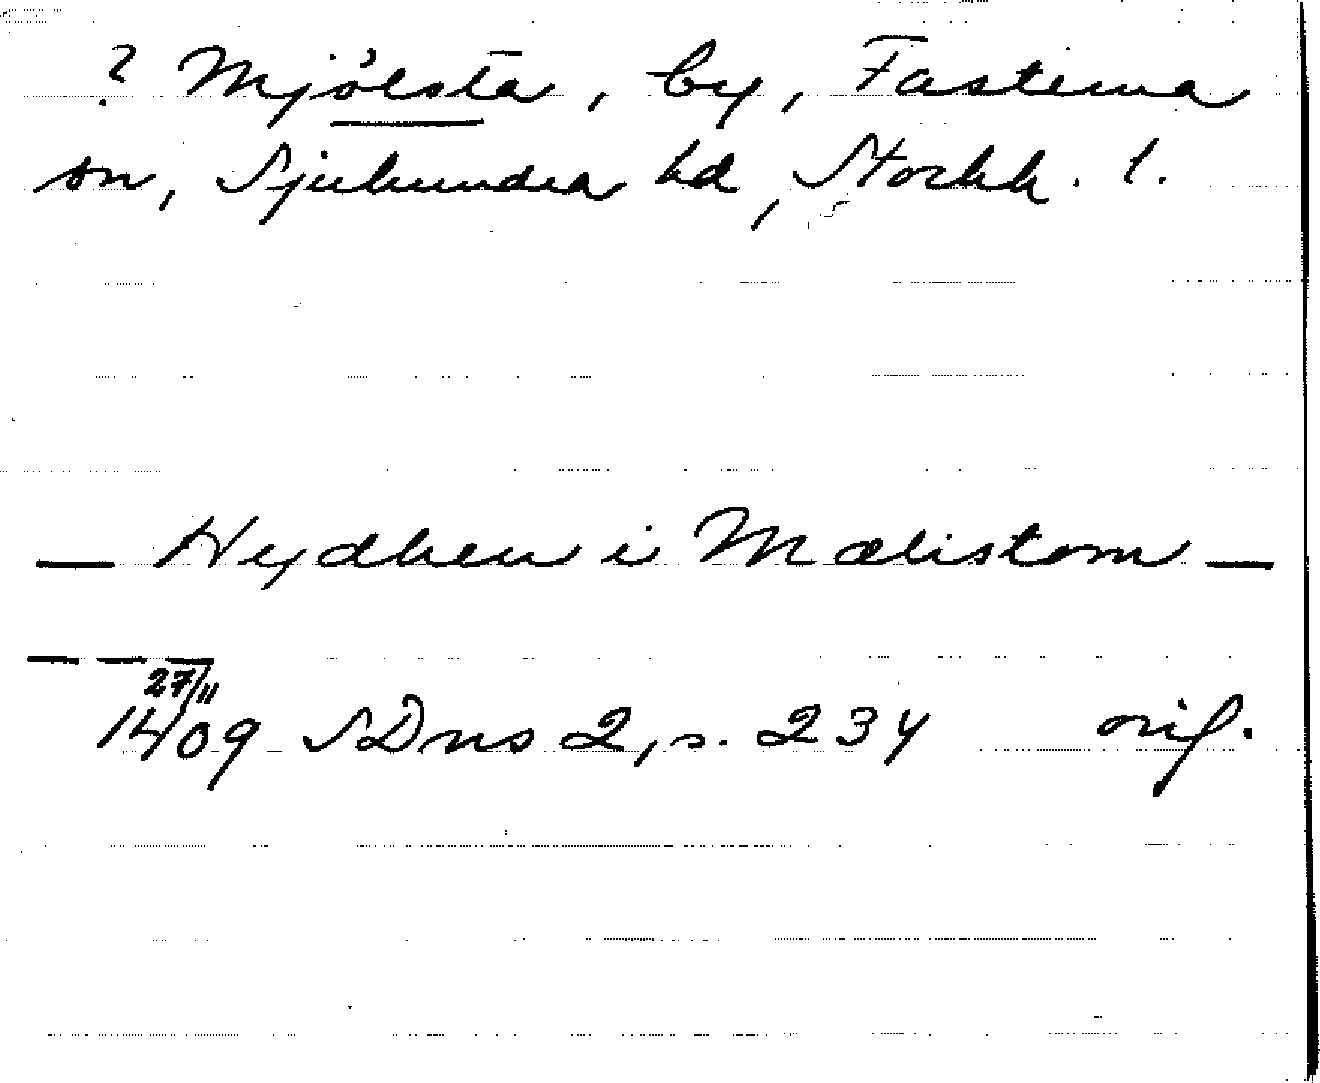 ? Mjölsta, by, Fasterna
sn, Sjuhundra hd, Stockh. l.
— Nydhen i Mælistom —
— — —
27/11
1409 SDns 2, s. 234 orig.